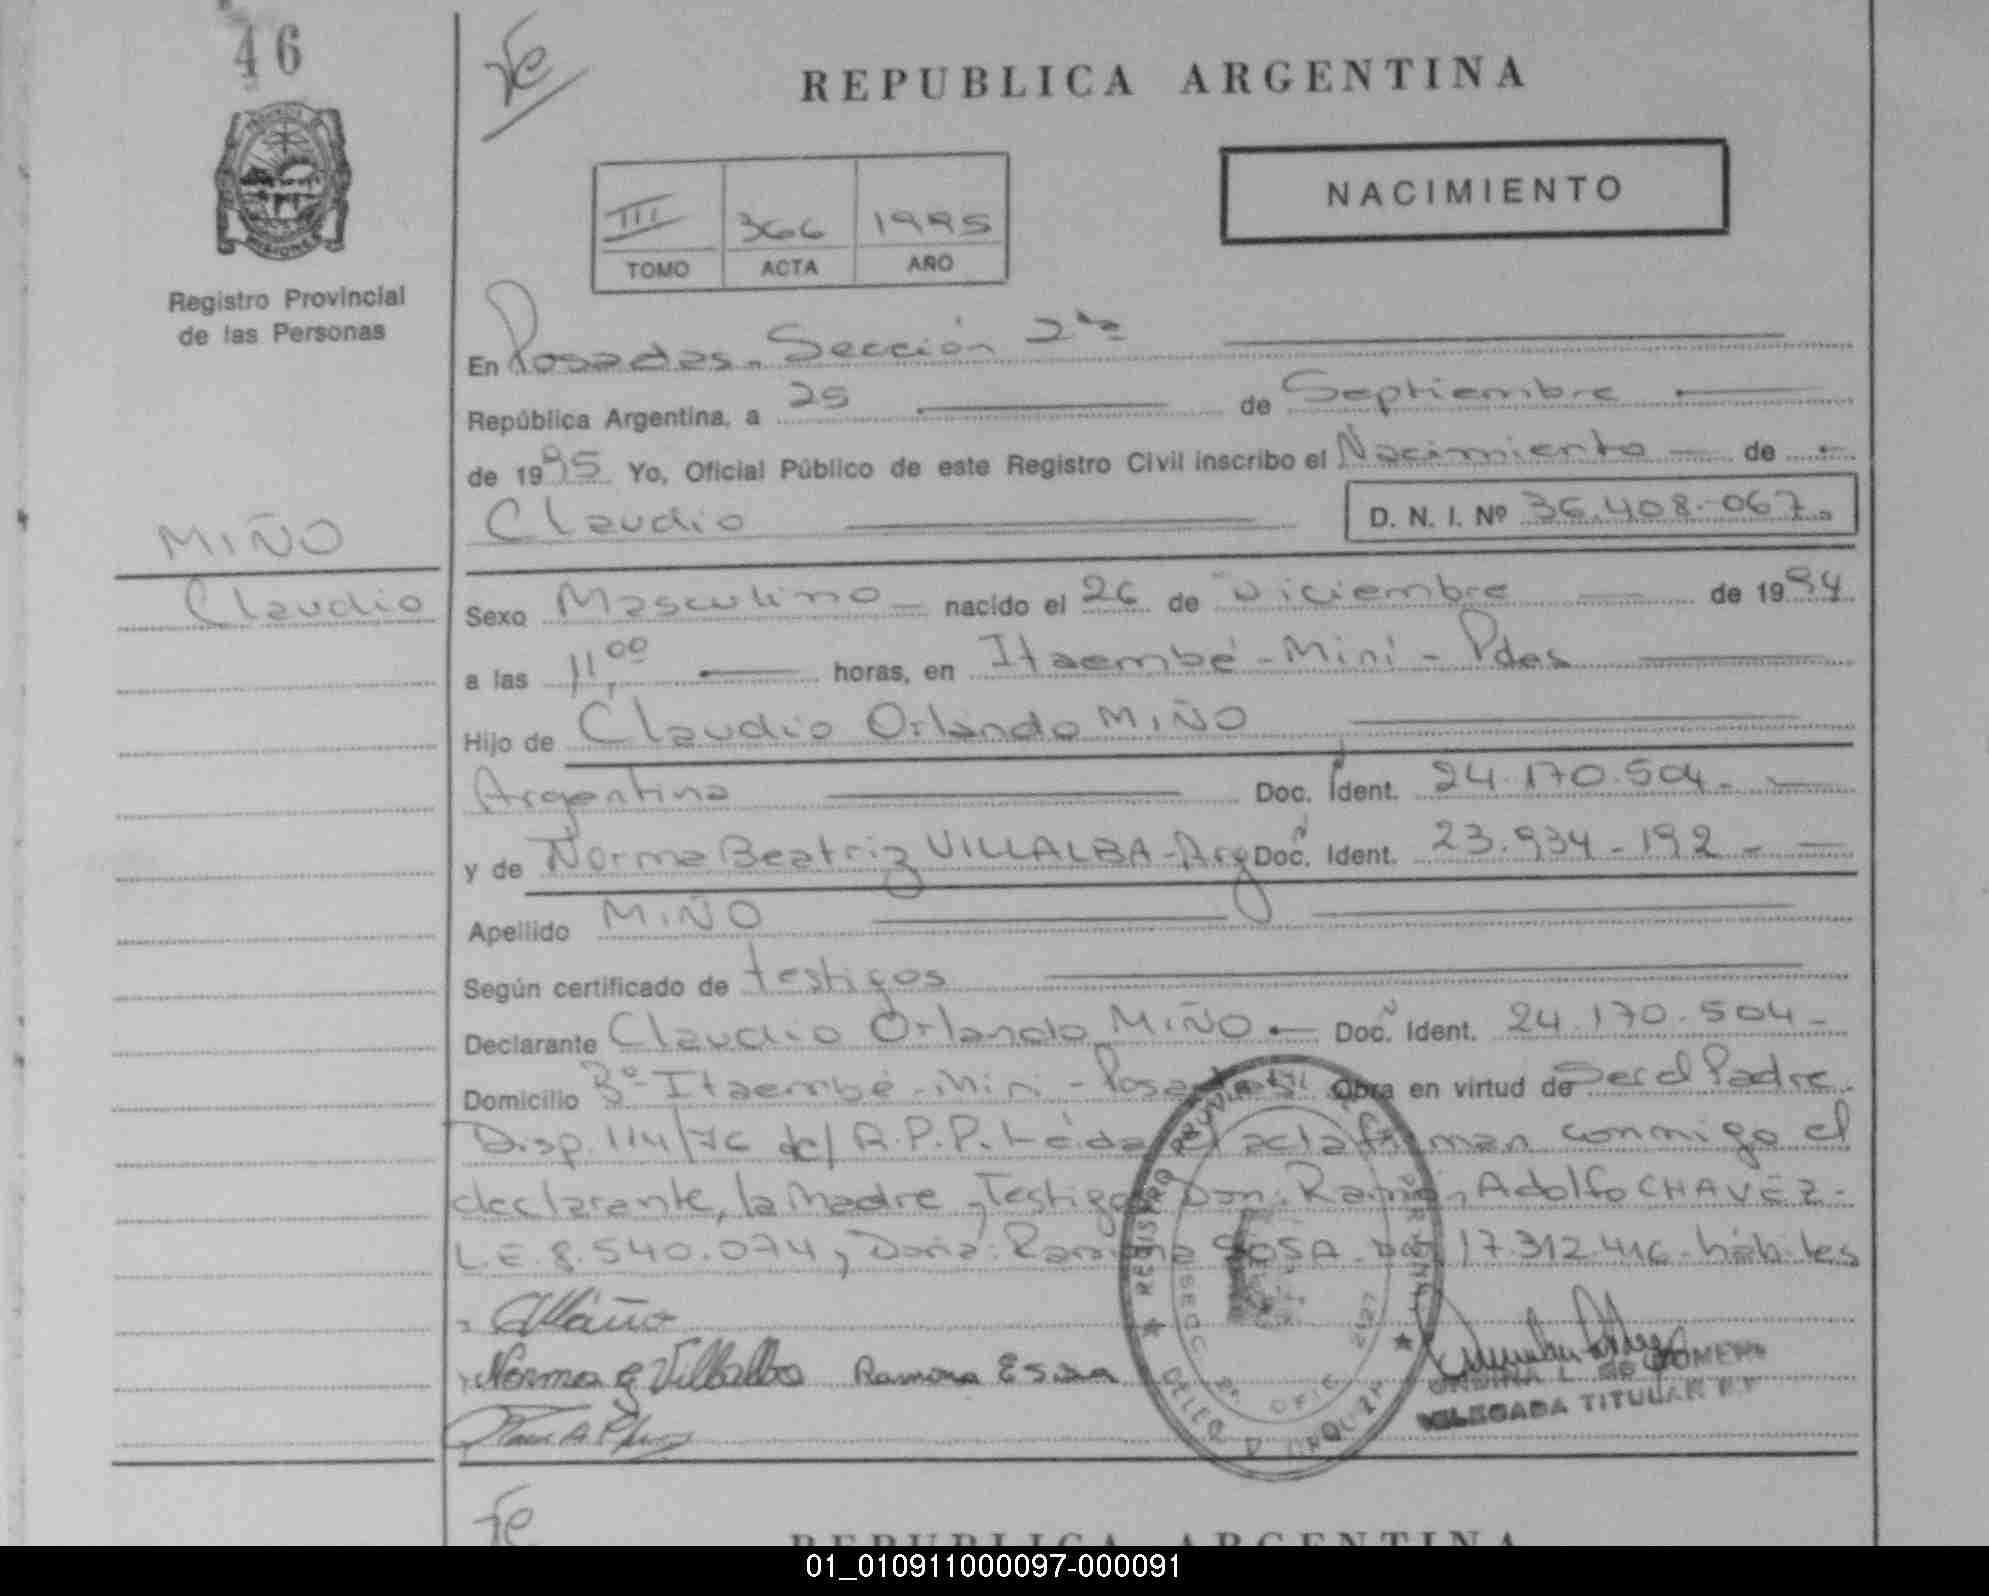 46
REPUBLICA ARGENTINA
NACIMIENTO
III 366 1995
TOMO ACTA AÑO
Registro Provincial
de las Personas
En Posadas. Sección 2da
República Argentina, a 25 de Septiembre
de 1995 Yo, Oficial Público de este Registro Civil inscribo el Nacimiento de
Claudio D. N. I. Nº 36.408.067.
MIÑO
Claudio
Sexo Masculino nacido el 26 de Diciembre de 1994
a las 11,00 horas, en Itaembé-Mini-Pdas
Hijo de Claudio Orlando MIÑO
Argentina Doc. Ident. 24.170.504.
y de Norma Beatriz VILLALBA-Arg Doc. Ident. 23.934.192.
Apellido MIÑO
Según certificado de testigos
Declarante Claudio Orlando MIÑO Doc. Ident. 24.170.504-
Domicilio Bº Itaembé-Mini-Posadas Obra en virtud de Ser el Padre
Disp. 114/76 del R.P.P. Leída el acta firman conmigo el
declarante, la Madre y Testigos Don: Ramón Adolfo CHAVEZ-
L.E. 8.540.074, Doña: Ramona SOSA 17.312.416 hábiles
Norma B Villalba Ramona E Sosa
REGISTRO
DELEGADA TITULAR
REPUBLICA ARGENTINA
01_010911000097-000091